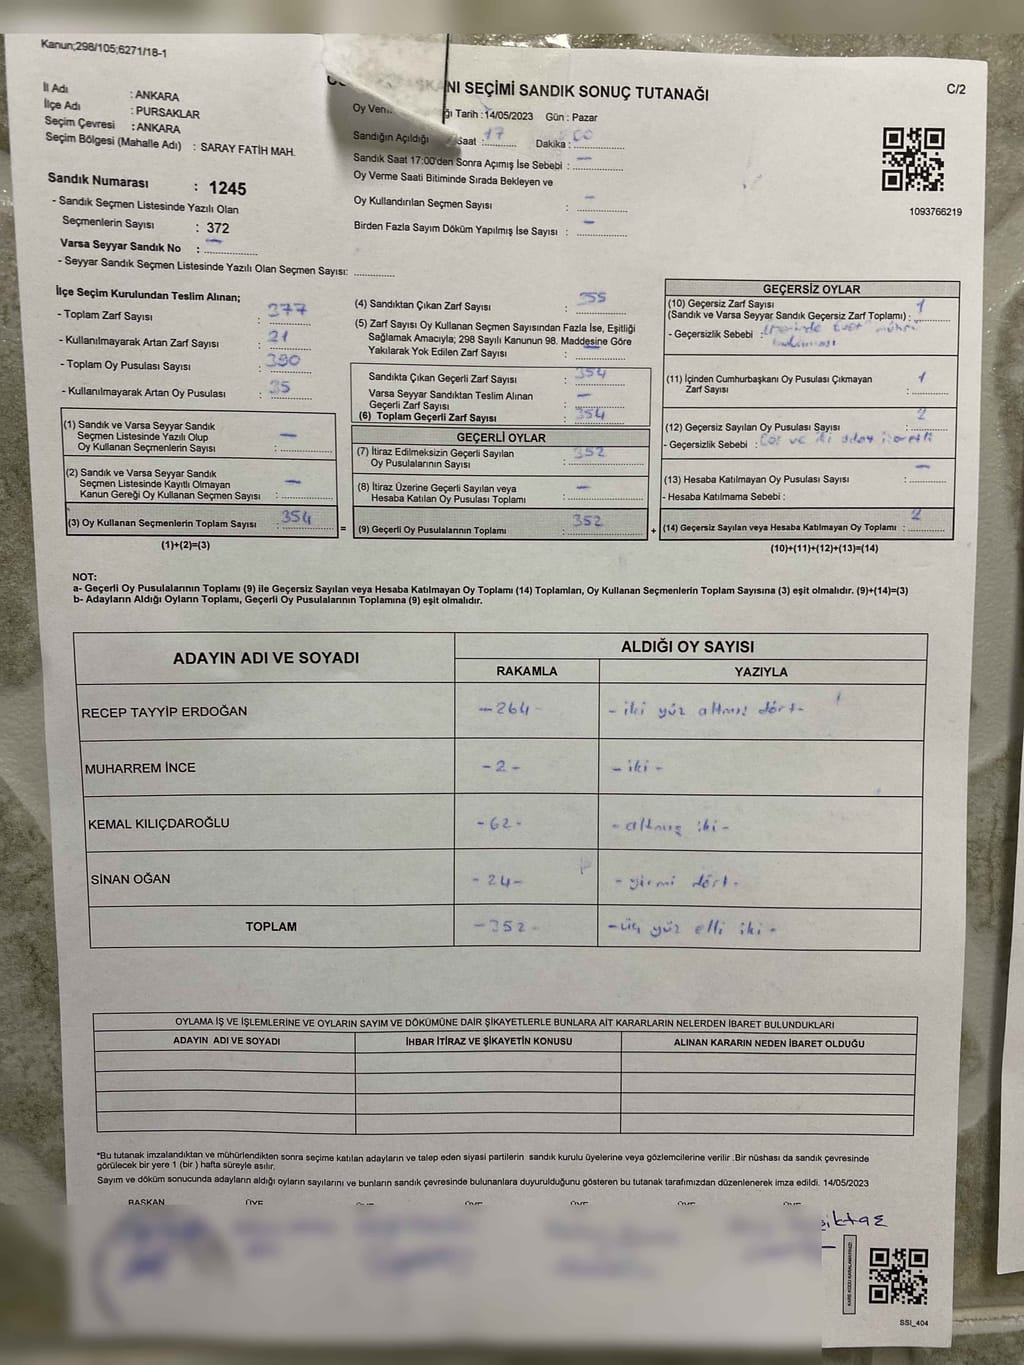 Kanun;298/105;6271/18-1
NI SEÇİMİ SANDIK SONUÇ TUTANAĞI
C/2
İl Adı : ANKARA
İlçe Adı : PURSAKLAR
Seçim Çevresi : ANKARA
Seçim Bölgesi (Mahalle Adı) : SARAY FATİH MAH.
Sandık Numarası : 1245
- Sandık Seçmen Listesinde Yazılı Olan
Seçmenlerin Sayısı : 372
Varsa Seyyar Sandık No : -
- Seyyar Sandık Seçmen Listesinde Yazılı Olan Seçmen Sayısı:
Oy Ver ğı Tarih :14/05/2023 Gün : Pazar
Sandığın Açıldığı Saat : 17 Dakika : 00
Sandık Saat 17:00'den Sonra Açımış İse Sebebi : -
Oy Verme Saati Bitiminde Sırada Bekleyen ve
Oy Kullandırılan Seçmen Sayısı : -
Birden Fazla Sayım Döküm Yapılmış İse Sayısı : -
1093766219
İlçe Seçim Kurulundan Teslim Alınan;
- Toplam Zarf Sayısı : 377
- Kullanılmayarak Artan Zarf Sayısı : 21
- Toplam Oy Pusulası Sayısı : 390
- Kullanılmayarak Artan Oy Pusulası : 35
(1) Sandık ve Varsa Seyyar Sandık
Seçmen Listesinde Yazılı Olup
Oy Kullanan Seçmenlerin Sayısı : -
(2) Sandık ve Varsa Seyyar Sandık
Seçmen Listesinde Kayıtlı Olmayan
Kanun Gereği Oy Kullanan Seçmen Sayısı : -
(3) Oy Kullanan Seçmenlerin Toplam Sayısı : 354
(1)+(2)=(3)
=
(4) Sandıktan Çıkan Zarf Sayısı : 355
(5) Zarf Sayısı Oy Kullanan Seçmen Sayısından Fazla İse, Eşitliği
Sağlamak Amacıyla; 298 Sayılı Kanunun 98. Maddesine Göre
Yakılarak Yok Edilen Zarf Sayısı : -
Sandıkta Çıkan Geçerli Zarf Sayısı : 354
Varsa Seyyar Sandıktan Teslim Alınan
Geçerli Zarf Sayısı : -
(6) Toplam Geçerli Zarf Sayısı : 354
GEÇERLİ OYLAR
(7) İtiraz Edilmeksizin Geçerli Sayılan
Oy Pusulalarının Sayısı : 352
(8) İtiraz Üzerine Geçerli Sayılan veya
Hesaba Katılan Oy Pusulası Toplamı : -
(9) Geçerli Oy Pusulalarının Toplamı : 352
+
GEÇERSİZ OYLAR
(10) Geçersiz Zarf Sayısı
(Sandık ve Varsa Seyyar Sandık Geçersiz Zarf Toplamı) : 1
- Geçersizlik Sebebi : üzerinde evet mührü
(11) İçinden Cumhurbaşkanı Oy Pusulası Çıkmayan
Zarf Sayısı : 1
(12) Geçersiz Sayılan Oy Pusulası Sayısı : 2
- Geçersizlik Sebebi : ve iki aday
(13) Hesaba Katılmayan Oy Pusulası Sayısı : -
- Hesaba Katılmama Sebebi :
(14) Geçersiz Sayılan veya Hesaba Katılmayan Oy Toplamı : 2
(10)+(11)+(12)+(13)=(14)
NOT:
a- Geçerli Oy Pusulalarının Toplamı (9) ile Geçersiz Sayılan veya Hesaba Katılmayan Oy Toplamı (14) Toplamları, Oy Kullanan Seçmenlerin Toplam Sayısına (3) eşit olmalıdır. (9)+(14)=(3)
b- Adayların Aldığı Oyların Toplamı, Geçerli Oy Pusulalarının Toplamına (9) eşit olmalıdır.
ADAYIN ADI VE SOYADI
ALDIĞI OY SAYISI
RAKAMLA YAZIYLA
RECEP TAYYİP ERDOĞAN -264- -iki yüz altmış dört-
MUHARREM İNCE -2- -iki-
KEMAL KILIÇDAROĞLU -62- -altmış iki-
SİNAN OĞAN -24- -yirmi dört-
TOPLAM -352- -üç yüz elli iki-
OYLAMA İŞ VE İŞLEMLERİNE VE OYLARIN SAYIM VE DÖKÜMÜNE DAİR ŞİKAYETLERLE BUNLARA AİT KARARLARIN NELERDEN İBARET BULUNDUKLARI
ADAYIN ADI VE SOYADI İHBAR İTİRAZ VE ŞİKAYETİN KONUSU ALINAN KARARIN NEDEN İBARET OLDUĞU
*Bu tutanak imzalandıktan ve mühürlendikten sonra seçime katılan adayların ve talep eden siyasi partilerin sandık kurulu üyelerine veya gözlemcilerine verilir .Bir nüshası da sandık çevresinde
görülecek bir yere 1 (bir ) hafta süreyle asılır.
Sayım ve döküm sonucunda adayların aldığı oyların sayılarını ve bunların sandık çevresinde bulunanlara duyurulduğunu gösteren bu tutanak tarafımızdan düzenlenerek imza edildi. 14/05/2023
BAŞKAN ÜYE ÜYE ÜYE ÜYE ÜYE
SSI_404